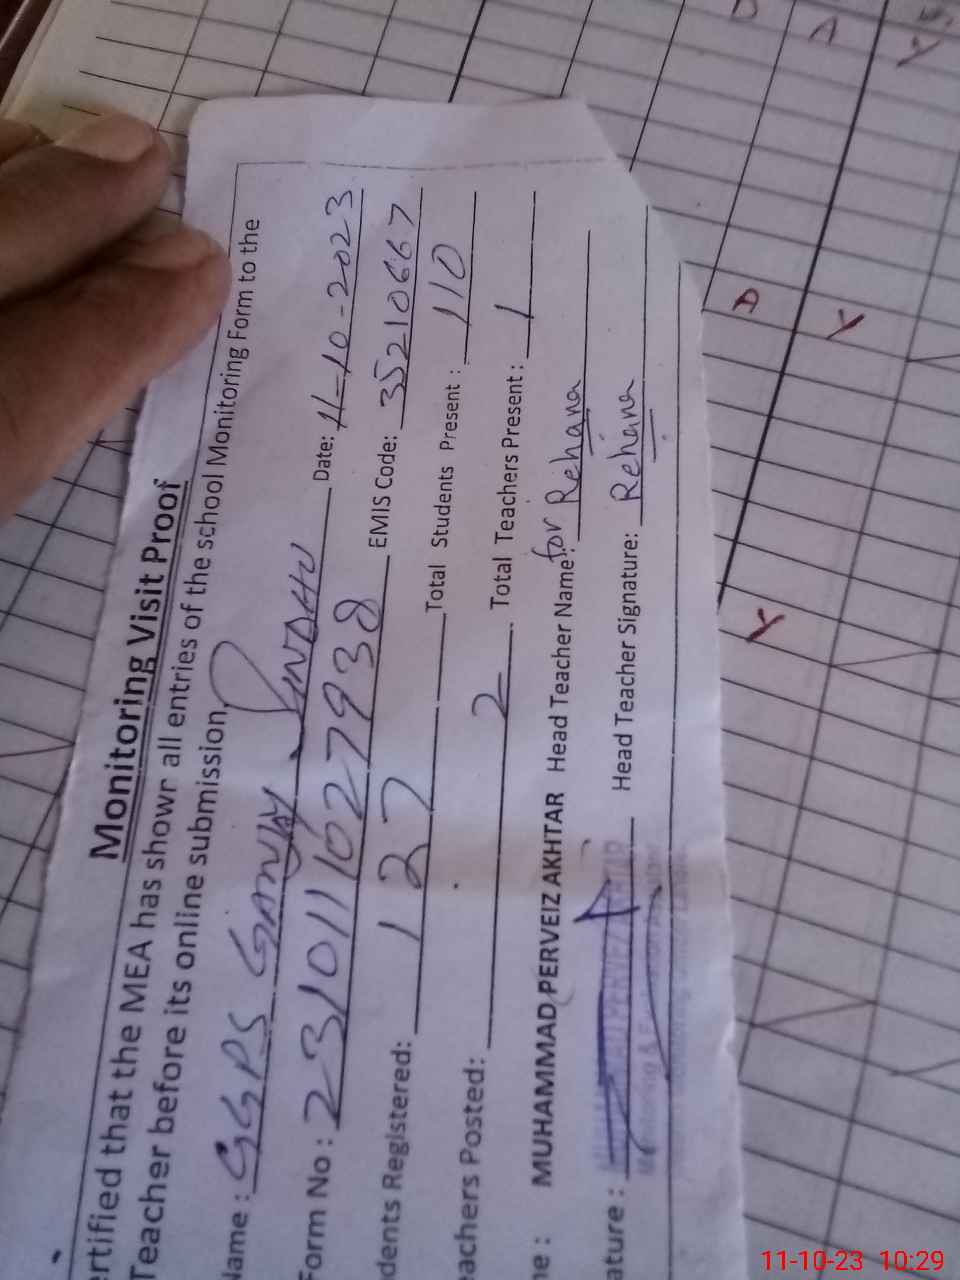 Monitoring Visit Proof
ertified that the MEA has shown all entries of the school Monitoring Form to the
Teacher before its online submission.
Name : GGPS GANJA SINDHU Date: 11-10-2023
Form No : 23101110279938 EMIS Code: 35210667
dents Registered: 127 Total Students Present : 110
eachers Posted: 2 Total Teachers Present : 1
ne : MUHAMMAD PERVEIZ AKHTAR Head Teacher Name: for Rehana
ature : Head Teacher Signature: Rehana
D
A
Y
A
Y
Y
11-10-23 10:29